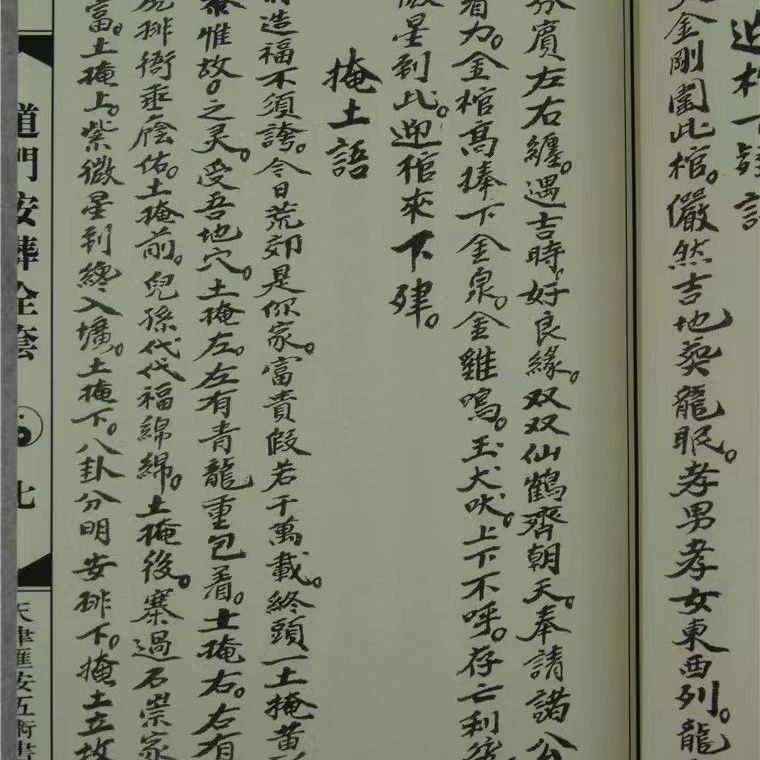 語
金剛圍此棺。儼然吉地葬龍眠。孝男孝女東西列。龍
分賓左右纏。遇吉時。好良緣。双双仙鶴齊朝天。奉請諸公
着力。金棺高捧下金泉。金雞鳴。玉犬吠。上下不呼。存亡利
微星到此。迎棺來下肂。
掩土語
造福不須誇。今日荒郊是你家。富貴假若千萬載。終頭一土掩黃
惟故。之灵。受吾地穴。土掩左。左有青龍重包着。土掩右。右有
虎排衙垂廕佑。土掩前。兒孫代代福綿綿。土掩後。寨過石崇家
富。土掩上。紫微星到纔入壙。土掩下。八卦分明安排下。掩土立故
道門安葬全套 七
天津匯安五術書